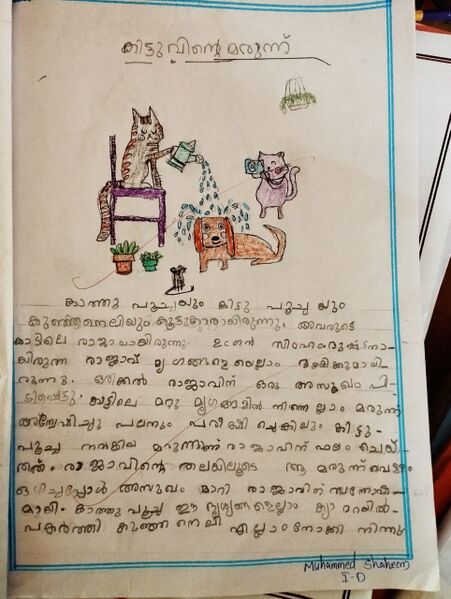 കിട്ടുവിന്റെ മരുന്ന്
കാത്തു പൂച്ചയും കിട്ടു പൂച്ച യും
കുഞ്ഞനെലിയും കൂട്ടുകാരായിരുന്നു. അവരുടെ
കാട്ടിലെ രാജാവായിരുന്നു ഉഗ്രൻ
രുന്ന രാജാവ് മൃഗങ്ങളെ യെല്ലാം
രുന്നു. ഒരിക്കൽ രാജാവിന് ഒരു അസുഖം പി
ടിപെട്ടു കാട്ടിലെ മറ്റു മൃഗങ്ങളിൽ നിന്നെ ല്ലാം മരുന്ന്
അന്വേഷിച്ചു പലതും കിട്ടു-
പൂച്ച നൽകിയ മരുന്നാണ് രാ ജാവിന് ഫലം ചെയ്
തത്. രാ ജാവിന്റെ തലക്കിലൂടെ ആ മരുന്ന് വെള്ളം
ഒഴിച്ചപ്പോൾ അസുഖം മാറി രാ ജാവിന് സന്തോഷ-
മായി. കാത്തു പൂച്ച ഈ ദൃശ്യങ്ങളെല്ലാം ക്യാ മറയിൽ-
പകർത്തി കുഞ്ഞ നെ ലി എല്ലാം നോക്കി നിന്നു
Muhammed Shaheem
I-D